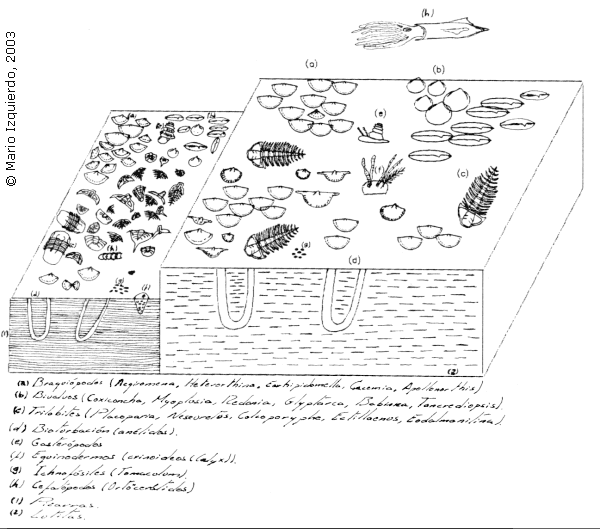 © Mario Izquierdo, 2003
(h)
(a)
(b)
(e)
(f)
(c)
(g)
(d)
(2)
(a)
(h)
(g)
(f)
(d)
(1)
(a) Braquiópodos (Aegiromena, Heterorthina, Cacemia,
(b) Bivalvos (Coxiconcha, Myoplusia, Redonia, Glyptarca, Babinka, Tancrediopsis).
(c) Trilobites (Placoparia, Neseuretus, Colpocoryphe, Ectillaenus, Eodalmanitina).
(d) Bioturbación (anélidos).
(e) Gasterópodos
(f) Equinodermos (crinoideos (Calyx)).
(g) Icnofósiles (Tomaculum).
(h) Cefalópodos (Ortocerátidos)
(1) Pizarras.
(2) Lutitas.